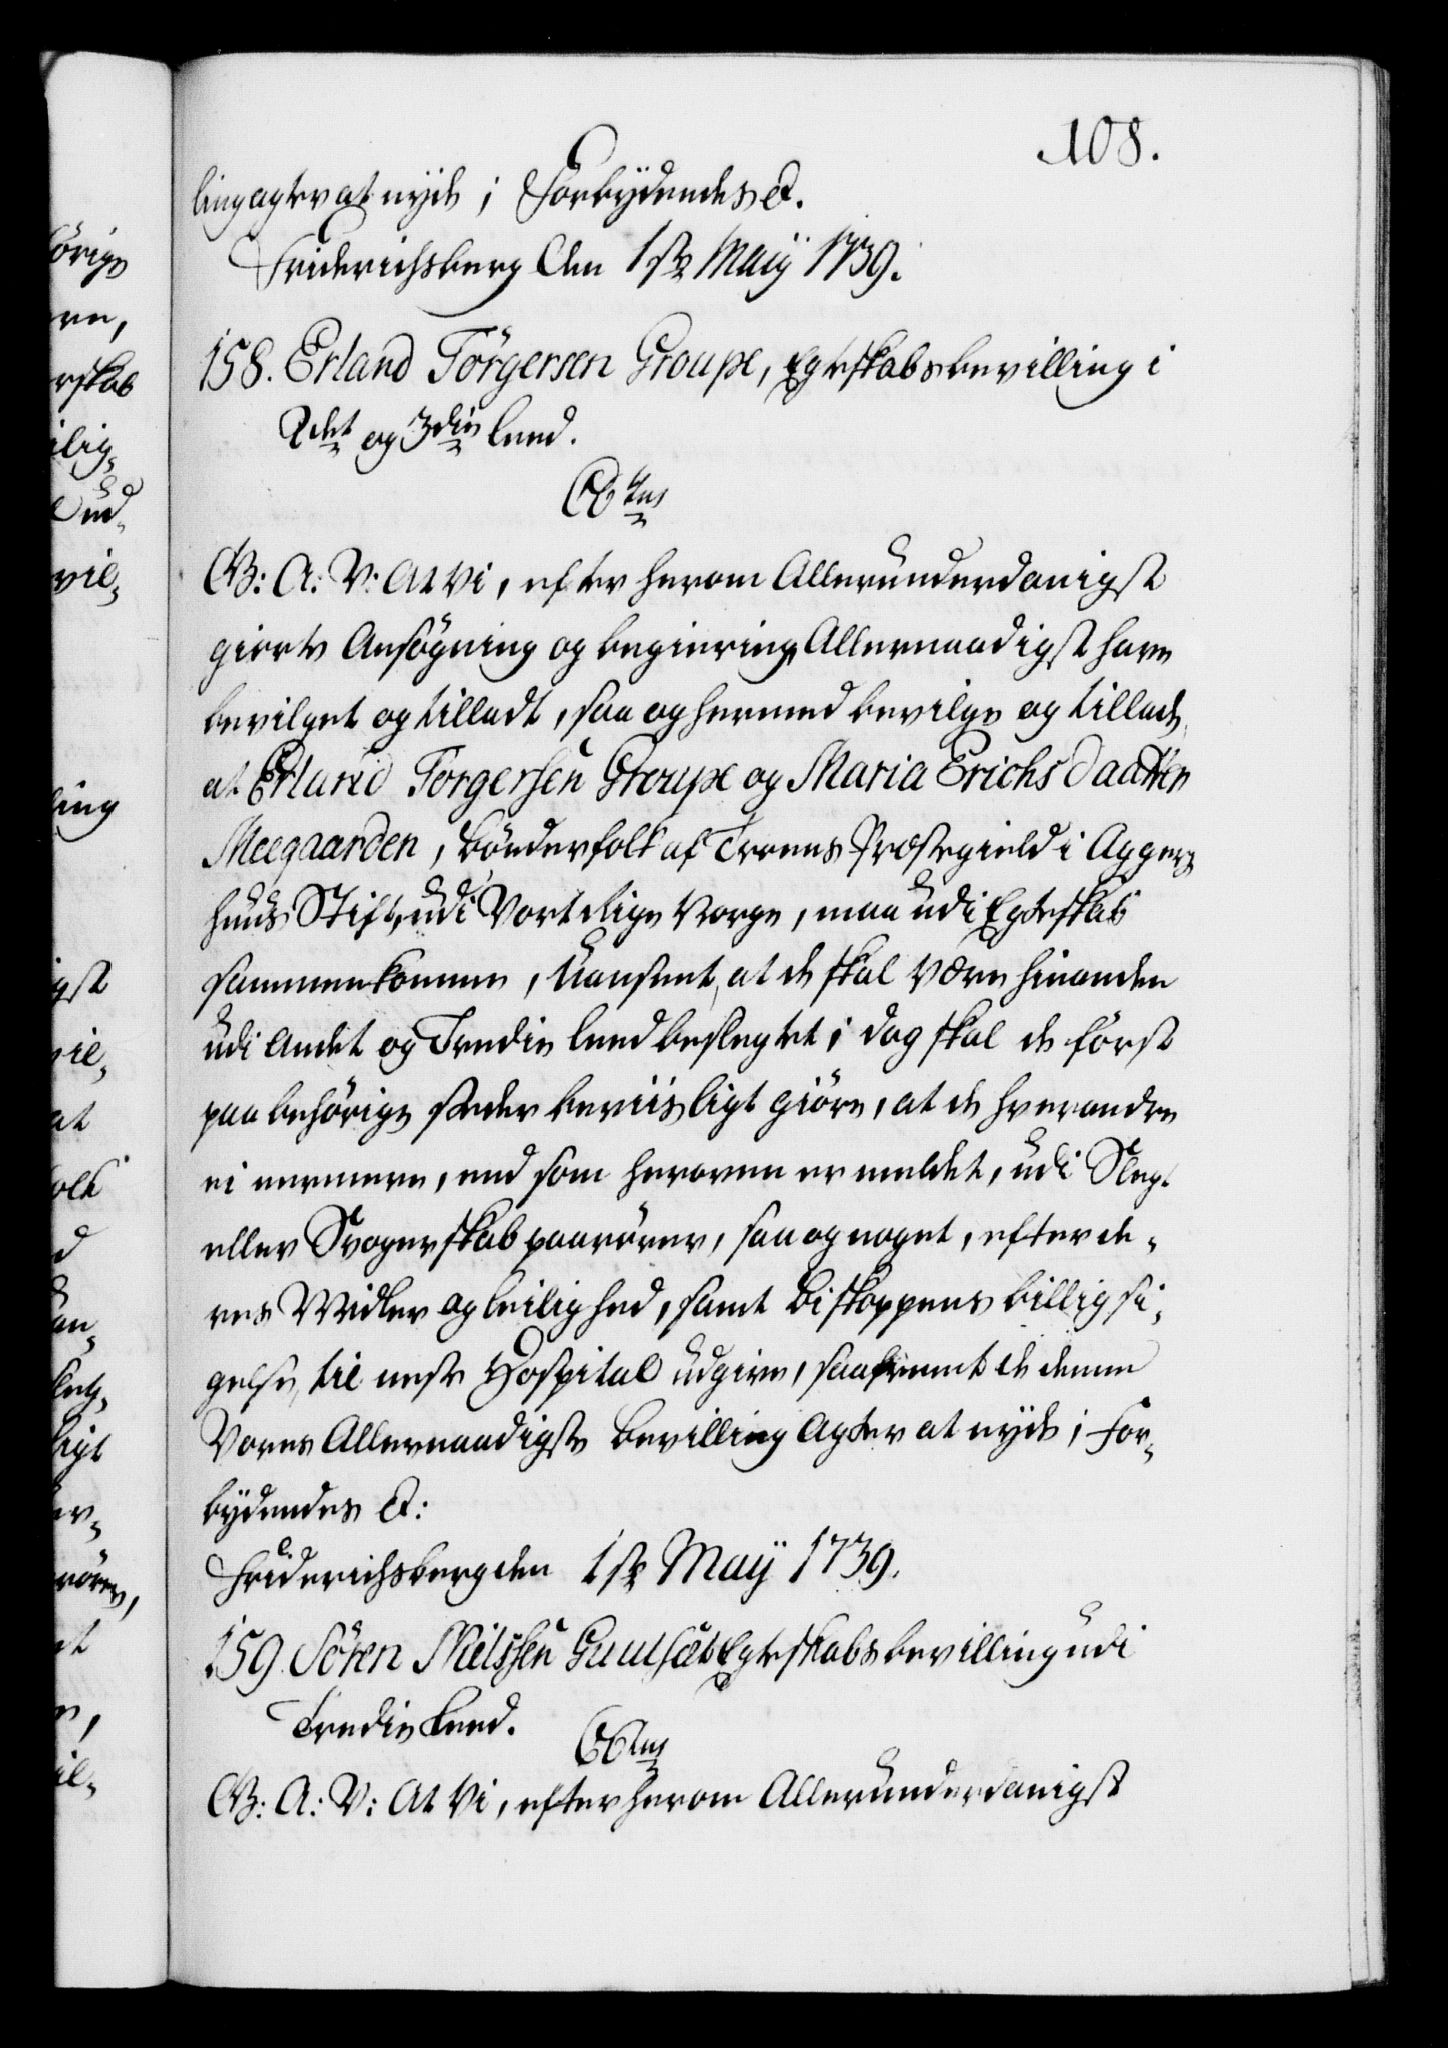 108.
ling agter at nyde; Forbydendes &.
Friderichsberg den 1ste Maij 1739.
158. Erland Törgersen Groupe, Egteskabs bevilling i
2det og 3die leed.
C6tus
G: A: V: At Vi, efter herom Allerunderdanigst
giorte Ansögning og begiering Allernaadigst have
bevilget og tilladt, saa og hermed bevilge og tillade,
at Erland Torgersen Groupe og Maria Erichs Daatter
Meegaarden, bönderfolk af Troens Præstegield i Aggers¬
huus Stift, udi Vort Rige Norge, maa udi Egteskab
sammenkomme, Uanseet, at de skal være hinanden
udi Andet og Tredie leed beslegtet; dog skal de först
paa behörige steder beviisligt giöre, at de hverandre
ei nermere, end som heroven er meldet, udi Slegt
eller Svogerskab paarörer, saa og noget, efter de¬
res Midler og leilighed, samt biskoppens billig si¬
gelse, til neste Hospital udgive, saafremt de denne
Vores Allernaadigste bevilling Agter at nyde; For¬
bydendes &:
Friderichsberg den 1ste Maij 1739.
159. Sören Nielssen Guulsæt Egteskabs bevilling udi
Tredie Leed.
C6tus
G: A: V: At Vi, efter herom Allerunderdanigst